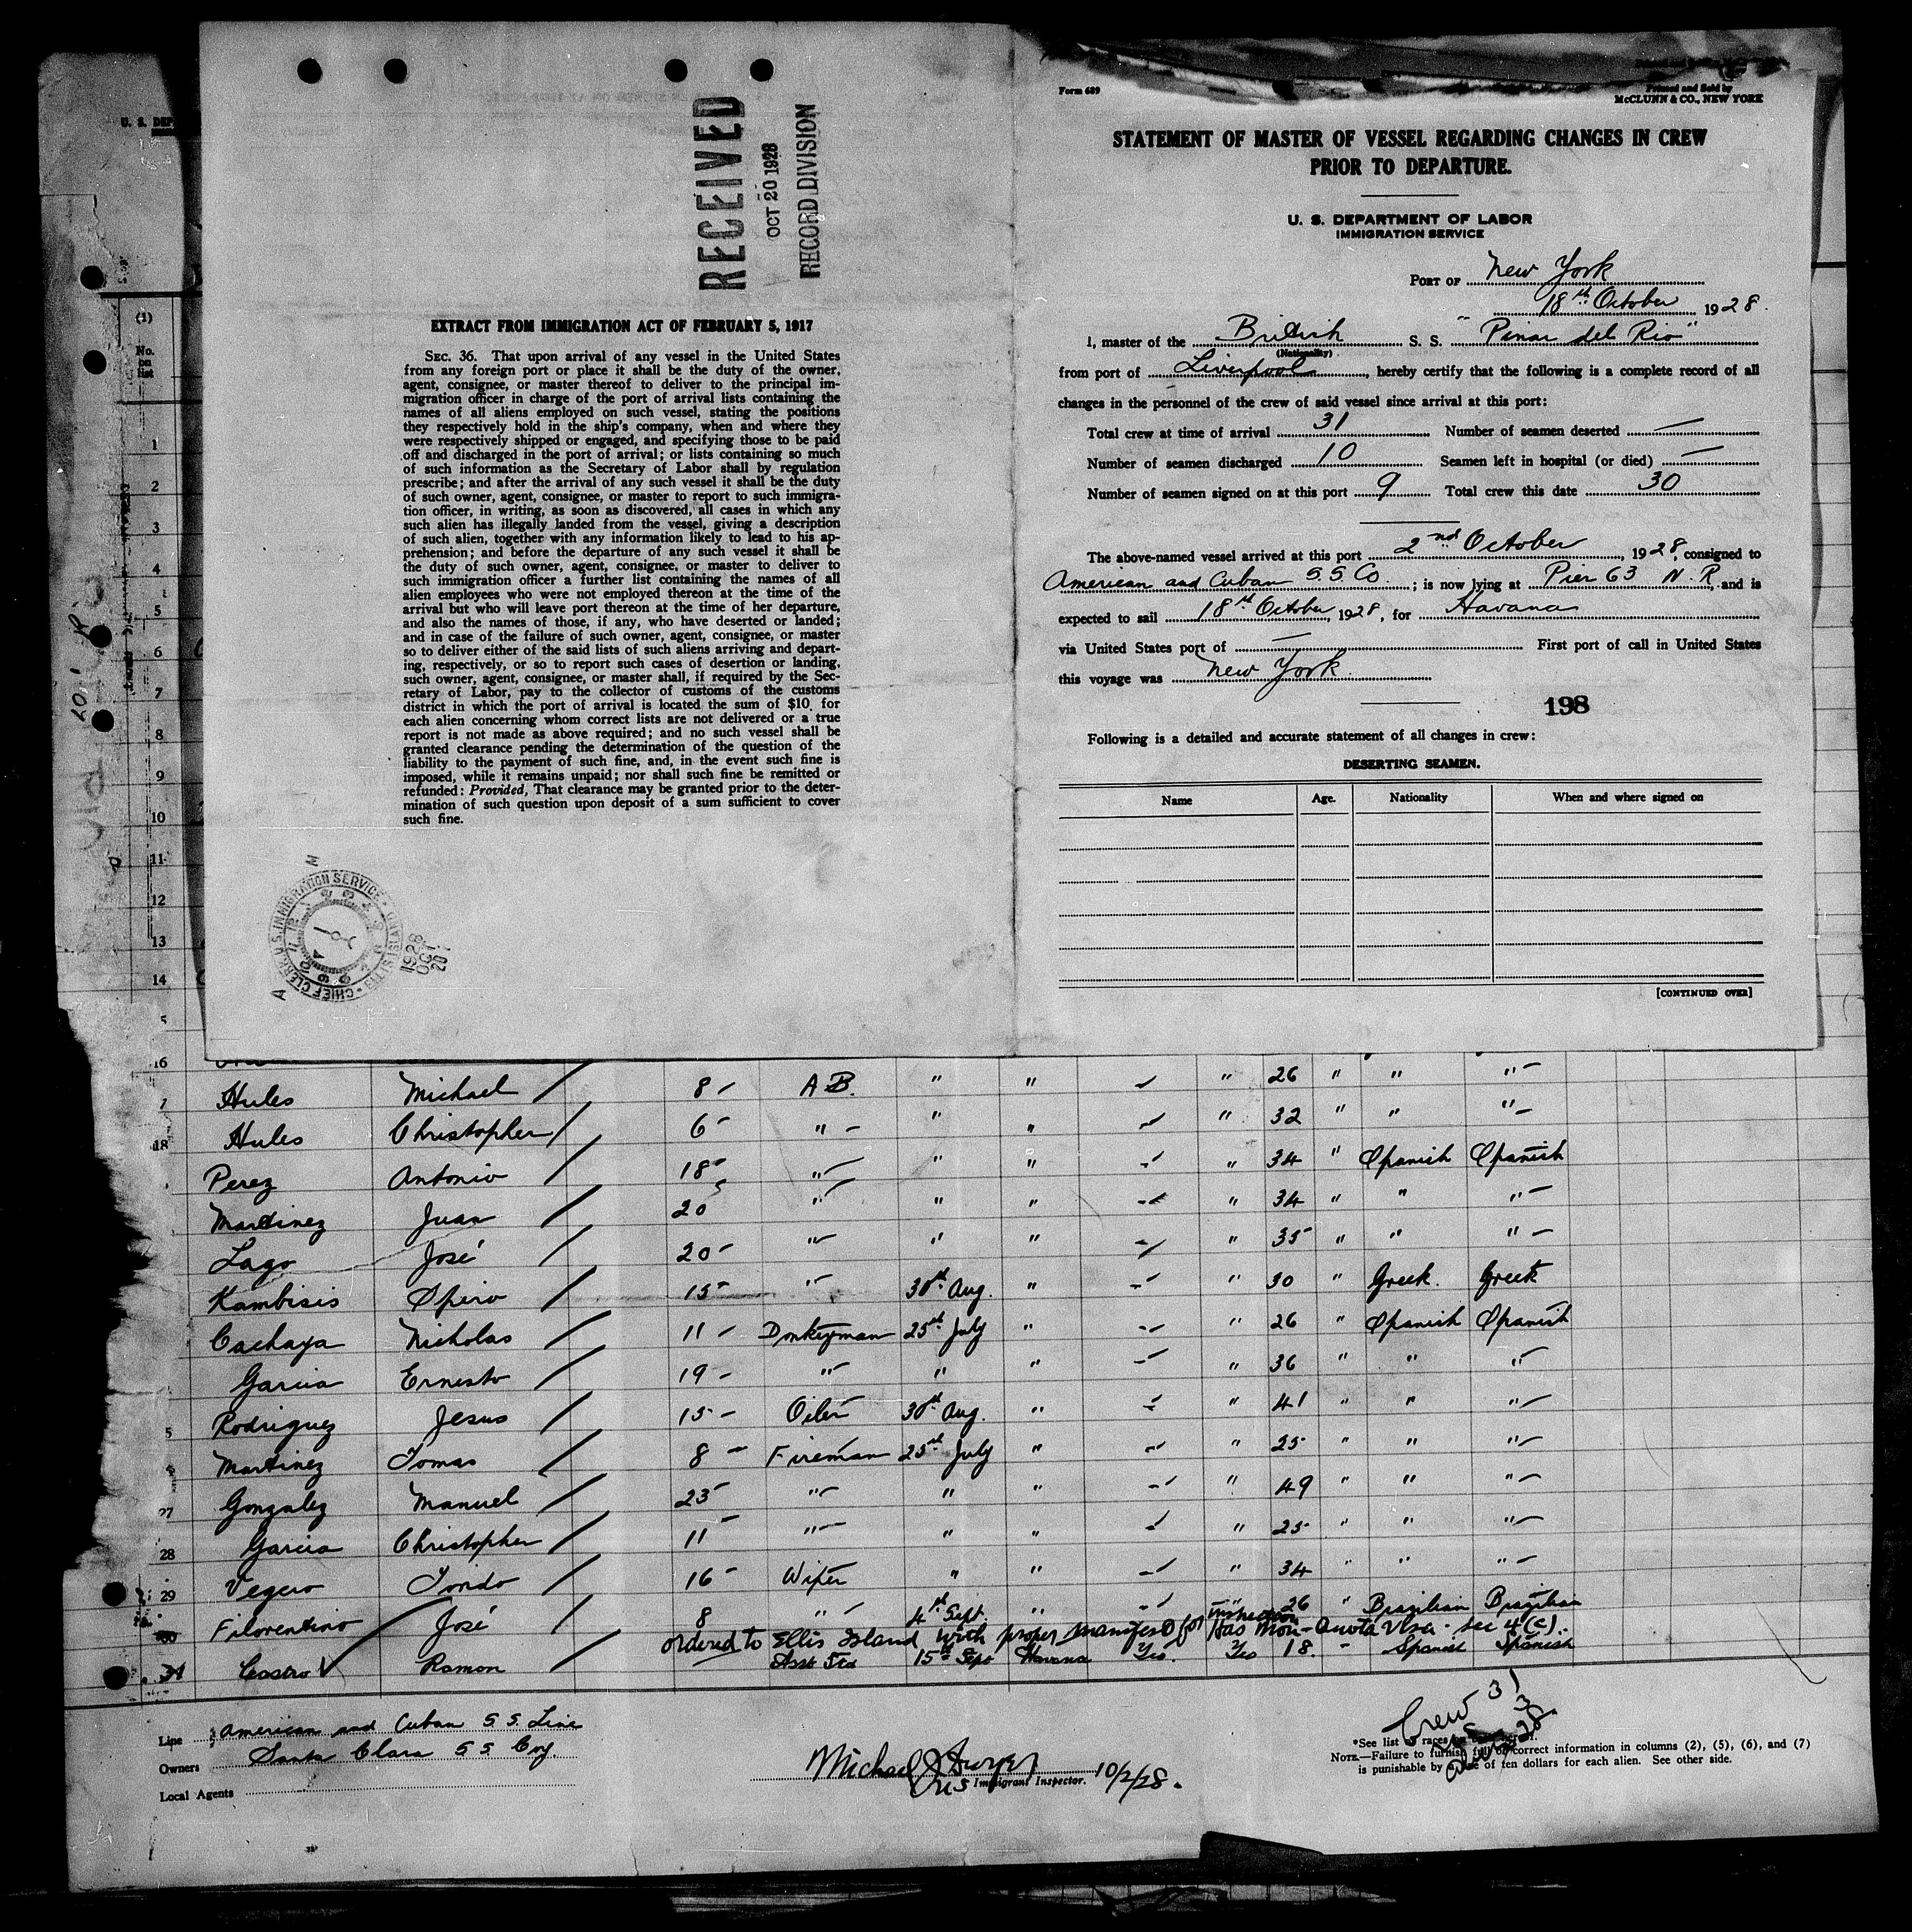 RECEIVED
OCT 20 1928
RECORD DIVISION
EXTRACT FROM IMMIGRATION ACT OF FEBRUARY 5, 1917
SEC. 36. That upon arrival of any vessel in the United States
from any foreign port or place it shall be the duty of the owner,
agent, consignee, or master thereof to deliver to the principal im-
migration officer in charge of the port of arrival lists containing the
names of all aliens employed on such vessel, stating the positions
they respectively hold in the ship's company, when and where they
were respectively shipped or engaged, and specifying those to be paid
off and discharged in the port of arrival; or lists containing so much
of such information as the Secretary of Labor shall by regulation
prescribe; and after the arrival of any such vessel it shall be the duty
of such owner, agent, consignee, or master to report to such immigra-
tion officer, in writing, as soon as discovered, all cases in which any
such alien has illegally landed from the vessel, giving a description
of such alien, together with any information likely to lead to his ap-
prehension; and before the departure of any such vessel it shall be
the duty of such owner, agent, consignee, or master to deliver to
such immigration officer a further list containing the names of all
alien employees who were not employed thereon at the time of the
arrival but who will leave port thereon at the time of her departure,
and also the names of those, if any, who have deserted or landed;
and in case of the failure of such owner, agent, consignee, or master
so to deliver either of the said lists of such aliens arriving and depart-
ing, respectively, or so to report such cases of desertion or landing,
such owner, agent, consignee, or master shall, if required by the Sec-
retary of Labor, pay to the collector of customs of the customs
district in which the port of arrival is located the sum of $10 for
each alien concerning whom correct lists are not delivered or a true
report is not made as above required; and no such vessel shall be
granted clearance pending the determination of the question of the
liability to the payment of such fine, and, in the event such fine is
imposed, while it remains unpaid; nor shall such fine be remitted or
refunded: Provided, That clearance may be granted prior to the deter-
mination of such question upon deposit of a sum sufficient to cover
such fine.
CHIEF CLERK U.S. IMMIGRATION SERVICE
1928 OCT 20
Form 689
Printed and Sold by
McCLUNN & CO., NEW YORK
STATEMENT OF MASTER OF VESSEL REGARDING CHANGES IN CREW
PRIOR TO DEPARTURE.
U. S. DEPARTMENT OF LABOR
IMMIGRATION SERVICE
PORT OF New York
18th October 1928.
I, master of the British S. S. "Pinar del Rio"
(Nationality)
from port of Liverpool, hereby certify that the following is a complete record of all
changes in the personnel of the crew of said vessel since arrival at this port:
Total crew at time of arrival 31 Number of seamen deserted —
Number of seamen discharged 10 Seamen left in hospital (or died) —
Number of seamen signed on at this port 9 Total crew this date 30
The above-named vessel arrived at this port 2nd October, 1928, consigned to
American and Cuban S.S. Co.; is now lying at Pier 63 N.R, and is
expected to sail 18th October, 1928, for Havana
via United States port of — First port of call in United States
this voyage was New York.
198
Following is a detailed and accurate statement of all changes in crew:
DESERTING SEAMEN.
Name Age. Nationality When and where signed on
[CONTINUED OVER]
U. S. DEP
(1)
No. on list
1
2
3
4
5
6
7
8
9
10
11
12
13
14
5
16
7 Hules Michael 8 - A.B. " " " 26 " " "
18 Hules Christopher 6 - " " " " 32 " " "
Perez Antonio 18 - " " " " 34 " Spanish Spanish
Martinez Juan 20 " " " " 34 " " "
Lago José 20 - " " " " 35 " " "
Kambisis Spiro 15 " 30th Aug. " " 30 " Greek. Greek
Cachaya Nicholas 11 - Donkeyman 25th July " " 26 " Spanish Spanish
Garcia Ernesto 19 - " " " " 36 " " "
5 Rodriguez Jesus 15 - Oiler 30th Aug. " " 41 " " "
Martinez Tomas 8 - Fireman 25th July " " 25 " " "
27 Gonzalez Manuel 23 - " " " " 49 " " "
28 Garcia Christopher 11 - " " " " 25 " " "
29 Vegero 16 - Wiper " " " 34 " " "
30 Filorentino José 8 " 4th Sept. " " 26 " Brazilian Brazilian
ordered to Ellis Island with proper manifest for inspection Has Non-Quota Visa - Sec 4(c).
31 Castro Ramon Asst Std 15th Sept Havana Yes. Yes 18. - Spanish Spanish
Line American and Cuban S S. Line
Owners Santa Clara S S. Coy.
Local Agents
Michael
Immigrant Inspector. 10/2/28.
Crew 31
*See list of races
NOTE.—Failure to furnish full or correct information in columns (2), (5), (6), and (7)
is punishable by a fine of ten dollars for each alien. See other side.